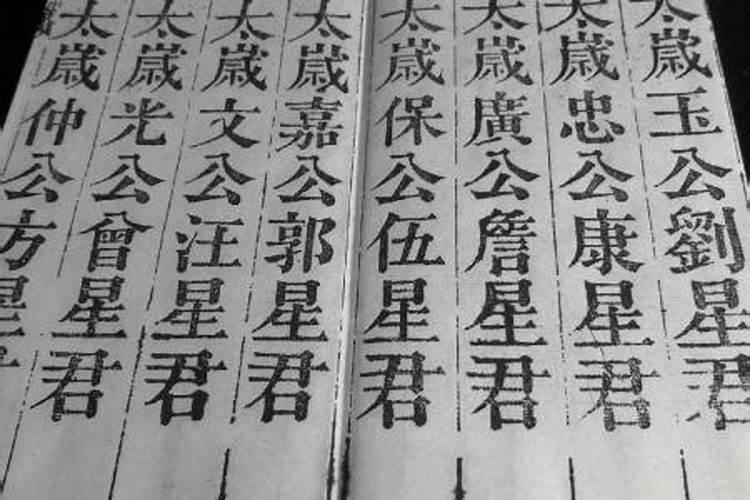 太歲玉公劉星君
太歲忠公康星君
太歲廣公詹星君
太歲保公伍星君
太歲嘉公郭星君
太歲文公汪星君
太歲光公曾星君
太歲仲公方星君